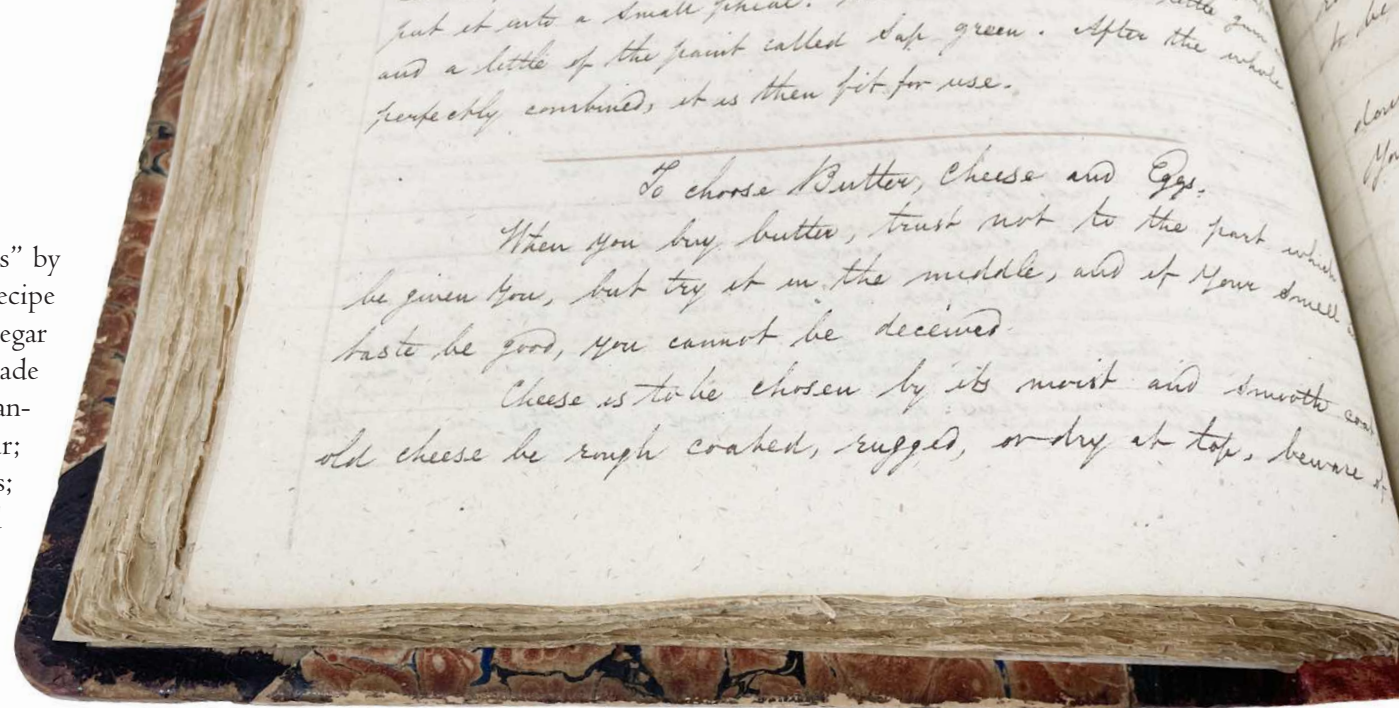 s” by
ecipe
egar
ade
an-
r;
s;
put it into a small phial.
little gum
and a little of the paint called Sap green. After the whole
perfectly combined, it is then fit for use.
To choose Butter, Cheese and Eggs.
When you buy butter, trust not to the part which
be given you, but try it in the middle, and if your smell
taste be good, you cannot be deceived.
Cheese is to be chosen by its moist and smooth coat
old cheese be rough coated, rugged, or dry at top, beware of
to be